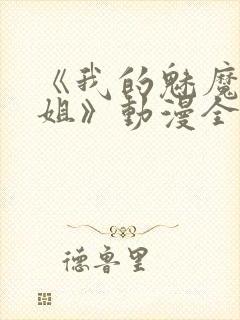 《我的魅魔
姐》動漫全
德魯里